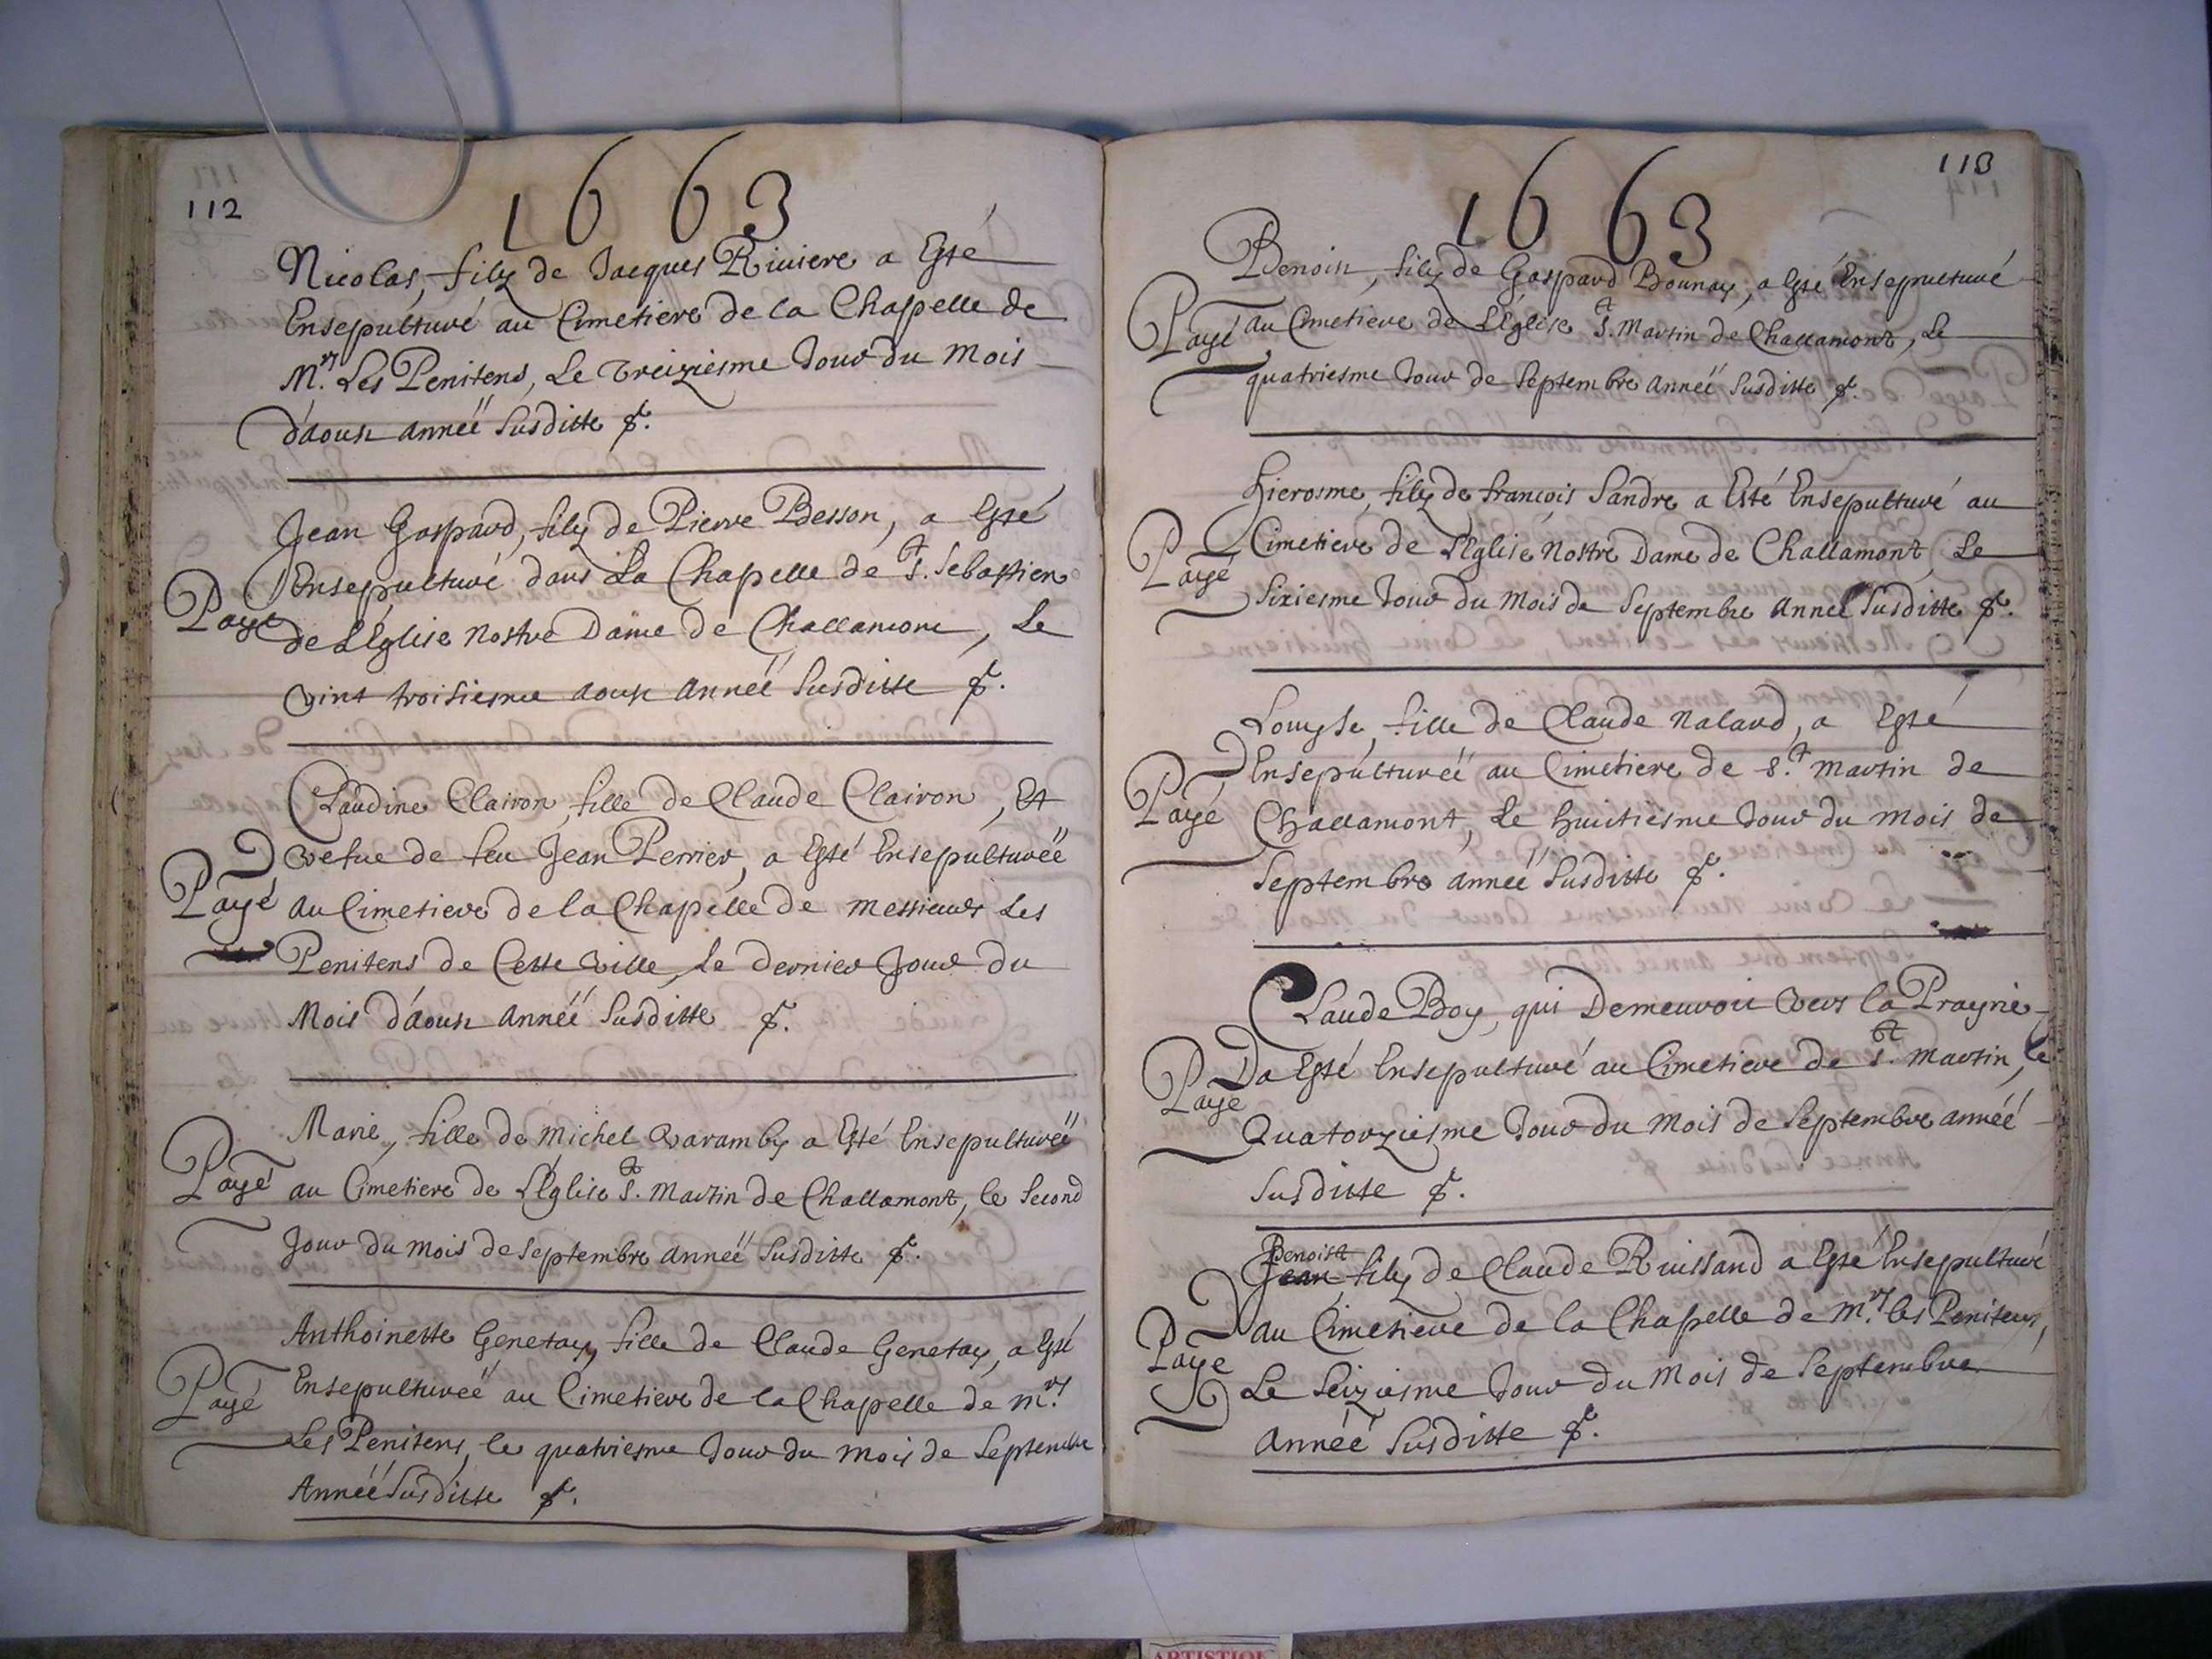 112
1663
Nicolas, filz de Jacques Riuiere a Esté
Ensepulturé au Cimetiere de la Chapelle de
M.rs Les Penitens, Le treiziesme Jour du Mois
d'aoust anneé Susditte &.
Jean Gaspard, filz de Pierre Besson, a Esté
Ensepulturé dans La Chapelle de S.t Sebastien
Payé
de L'Eglise Nostre Dame de Challamont, Le
vint troisiesme aoust anneé Susditte &.
Claudine Clairon fille de Claude Clairon, Et
vefue de feu Jean Perrier, a Esté Ensepultureé
Payé
au Cimetiere de la Chapelle de Messieurs Les
Penitens de Cette ville, Le dernier Jour du
Mois d'aoust anneé Susditte &.
Marie, fille de Michel Varamby a Esté Ensepultureé
Payé
au Cimetiere de L'Eglise S.t Martin de Challamont, le Second
Jour du mois de Septembre anneé Susditte &.
Anthoinette Genetay, fille de Claude Genetay, a Esté
Payé
Ensepultureé au Cimetiere de la Chapelle de M.rs
Les Penitens, le quatriesme Jour du mois de Septembre
Anneé Susditte &.
113
1663
Benoist, filz de Gaspard Bounay, a Esté Ensepulturé
Payé
au Cimetiere de L'Eglise S.t Martin de Challamont, Le
quatriesme Jour de Septembre anneé Susditte &.
Hierosme, filz de françois Sandre a Esté Ensepulturé au
Payé
Cimetiere de L'Eglise Nostre Dame de Challamont, Le
Sixiesme Jour du Mois de Septembre anneé Susditte &.
Louyse, fille de Claude Nalard, a Esté
Ensepultureé au Cimetiere de S.t Martin de
Payé
Challamont, Le huitiesme Jour du mois de
Septembre anneé Susditte &.
Claude Boy, qui Demeuroit vers la Prayrie
a Esté Ensepulturé au Cimetiere de S.t Martin, le
Payé
Quatorziesme Jour du Mois de Septembre anneé
Susditte &.
Benoist
Jean filz de Claude Ruissand a Esté Ensepulturé
au Cimetiere de la Chapelle de M.rs les Penitens,
Payé
Le Seiziesme Jour du Mois de Septembre
Anneé Susditte &.